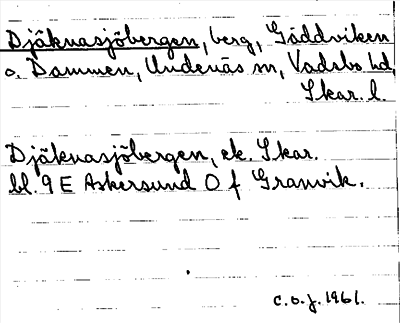 Djäknasjöbergen, berg, Gäddviken
o. Dammen, Undenäs sn, Vadsbo hd,
Skar. l.
Djäknasjöbergen, ek. Skar.
bl. 9 E Askersund O f Granvik.
c.o.j. 1961.